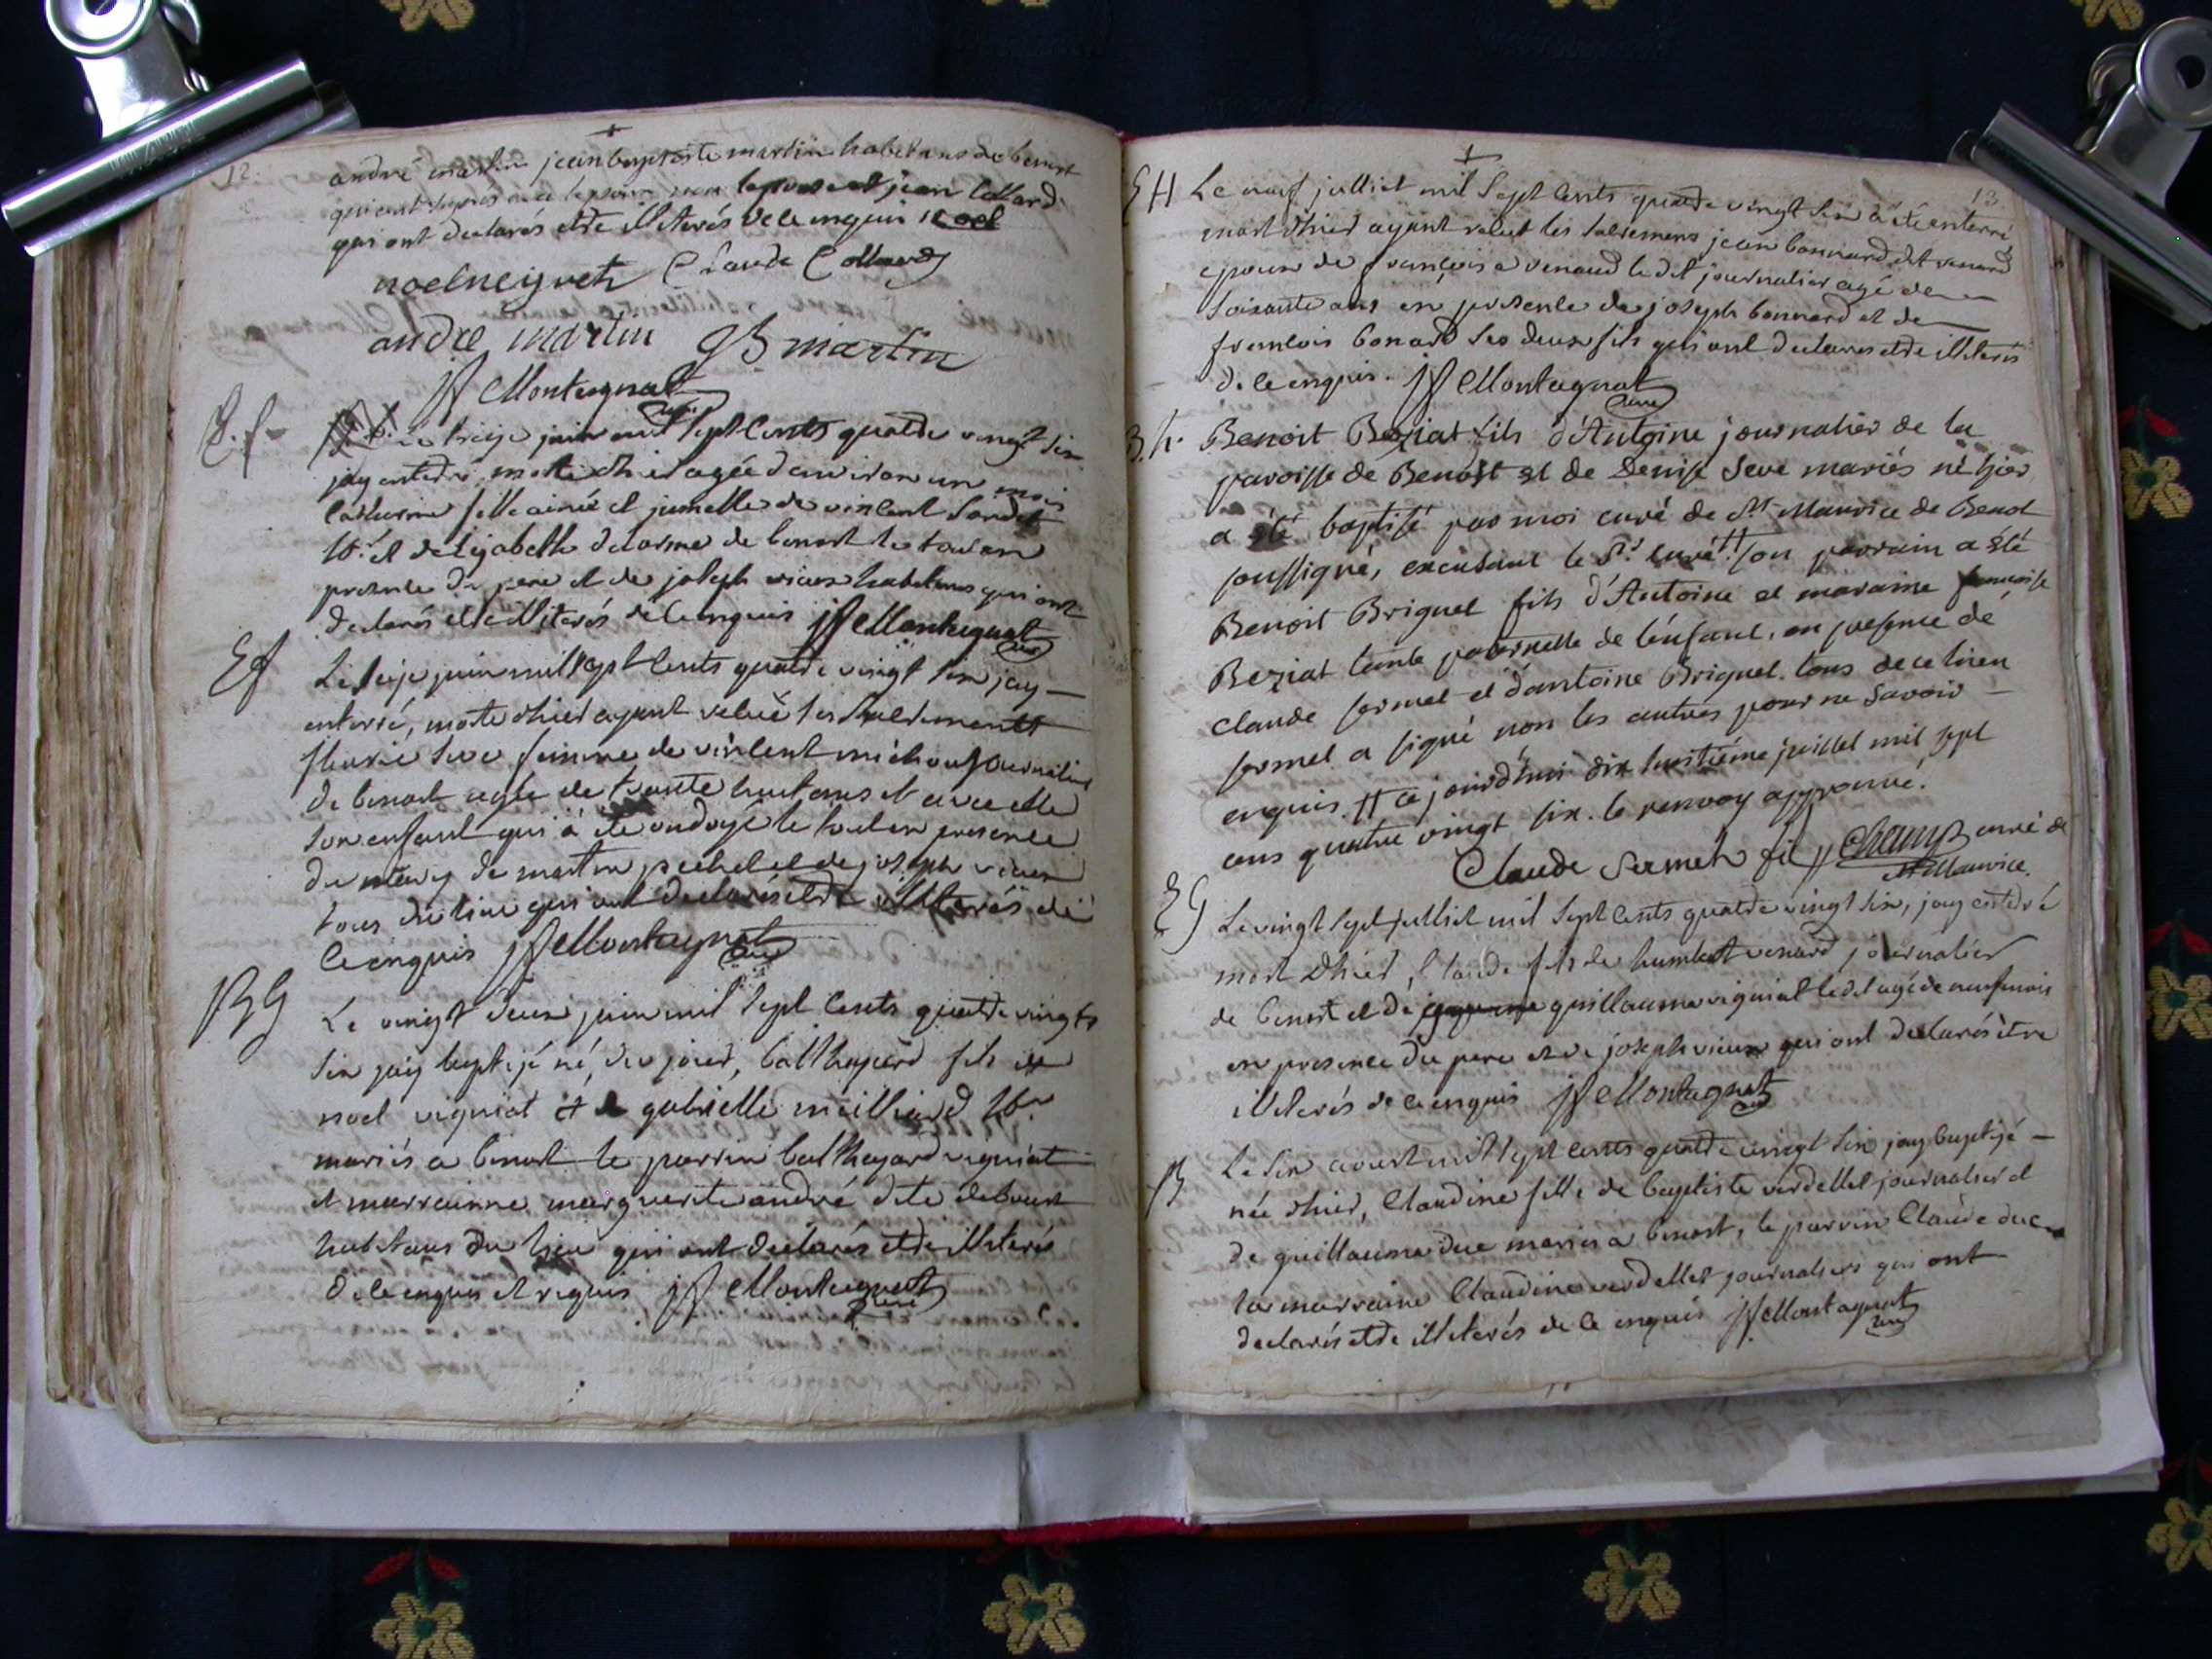 12.
andré martin jean baptiste martin habitans de benost
qui ont signés non le pour et jean collard
qui ont declarés etre illiterés de ce enquis
noel neyret Claude Collard
andre martin JB martin
jf Montagnat
curé
Le treize juin mil sept cents quatre vingt six
jay enterré, morte d'hier agée d'environ un mois
catherine fille ainée et jumelle de vincent
et d'elizabeth delorme de benost le tout en
presence du pere et de joseph vieux habitans qui ont
declarés etre illiterés de ce enquis jf Montagnat
curé
Ef Le seize juin mil sept cents quatre vingt six jay
enterré, morte d'hier ayant relué les sacrements
fleurie seve femme de vincent michou journalier
de benost agée de trente huit ans et avec elle
son enfant qui à été ondoyé le tout en presence
du mary de martin pechel et de joseph vieux
tous du lieu qui ont declarés etre illiterés de
ce enquis jf Montagnat
curé
BG Le vingt deux juin mil sept cents quatre vingts
six jay baptisé né, du jour, balthazard fils de
noel vigniat et de gabrielle meilliard
mariés a benost le parrin balthazard vigniat
et marrainne marguerite andré dite
habitans du lieu qui ont declarés etre illiterés
de ce enquis et requis jf Montagnat
curé
13.
EH Le neuf julliet mil sept cents quatre vingt six à été enterré
mort d'hier ayant relué les sacremens jean bonnard dit renard
epoux de françoise renaud le dit journalier agé de
soixante ans en presence de joseph bonnard et de
francois bonard ses deux fils qui ont declarés etre illiterés
de ce enquis. jf Montagnat
curé
B.h. Benoit Beziat fils d'Antoine journalier de la
paroisse de Benost et de Denise Seve mariés né hier
a été baptisé par moi curé de St Maurice de Benost
soussigné, excusant le Sr. curé # son parrain a été
Benoit Briquel fils d'Antoine et maraine françoise
Beziat tante paternelle de l'enfant, en presence de
claude sermet et d'antoine Briquel tous de ce lieu
sermet a signé non les autres pour ne savoir
enquis # ce jourd'hui dix huitiéme juillet mil sept
cens quatre vingt six. le renvoy approuvé.
Claude Sermet champ curé de
St Maurice.
EG Le vingt sept julliet mil sept cents quatre vingt six, jay enterré
mort d'hier, Claude fils de humbert venard journalier
de benost et de guillauma vigniat le dit agé de neuf mois
en presence du pere et de joseph vieux qui ont declarés etre
illiterés de ce enquis jf Montagnat
curé
B Le six aoust mil sept cents quatre vingt six jay baptisé
née d'hier, Claudine fille de baptiste verdellet journalier et
de guillauma duc mariés a benost, le parrin Claude duc
la marraine Claudine verdellet journaliers qui ont
declarés etre illiterés de ce enquis jf Montagnat
curé